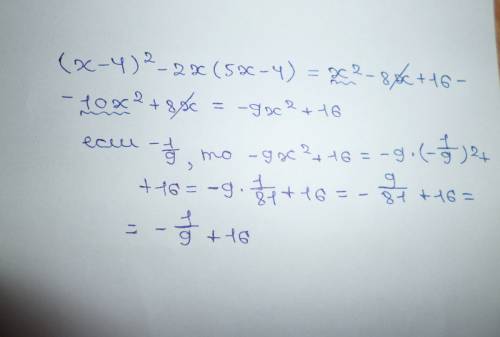 (x-4)² - 2x(5x-4) = x² - 8x + 16 -
- 10x² + 8x = -9x² + 16
если -1/9, то -9x² + 16 = -9·(-1/9)² +
+ 16 = -9·1/81 + 16 = -9/81 + 16 =
= -1/9 + 16